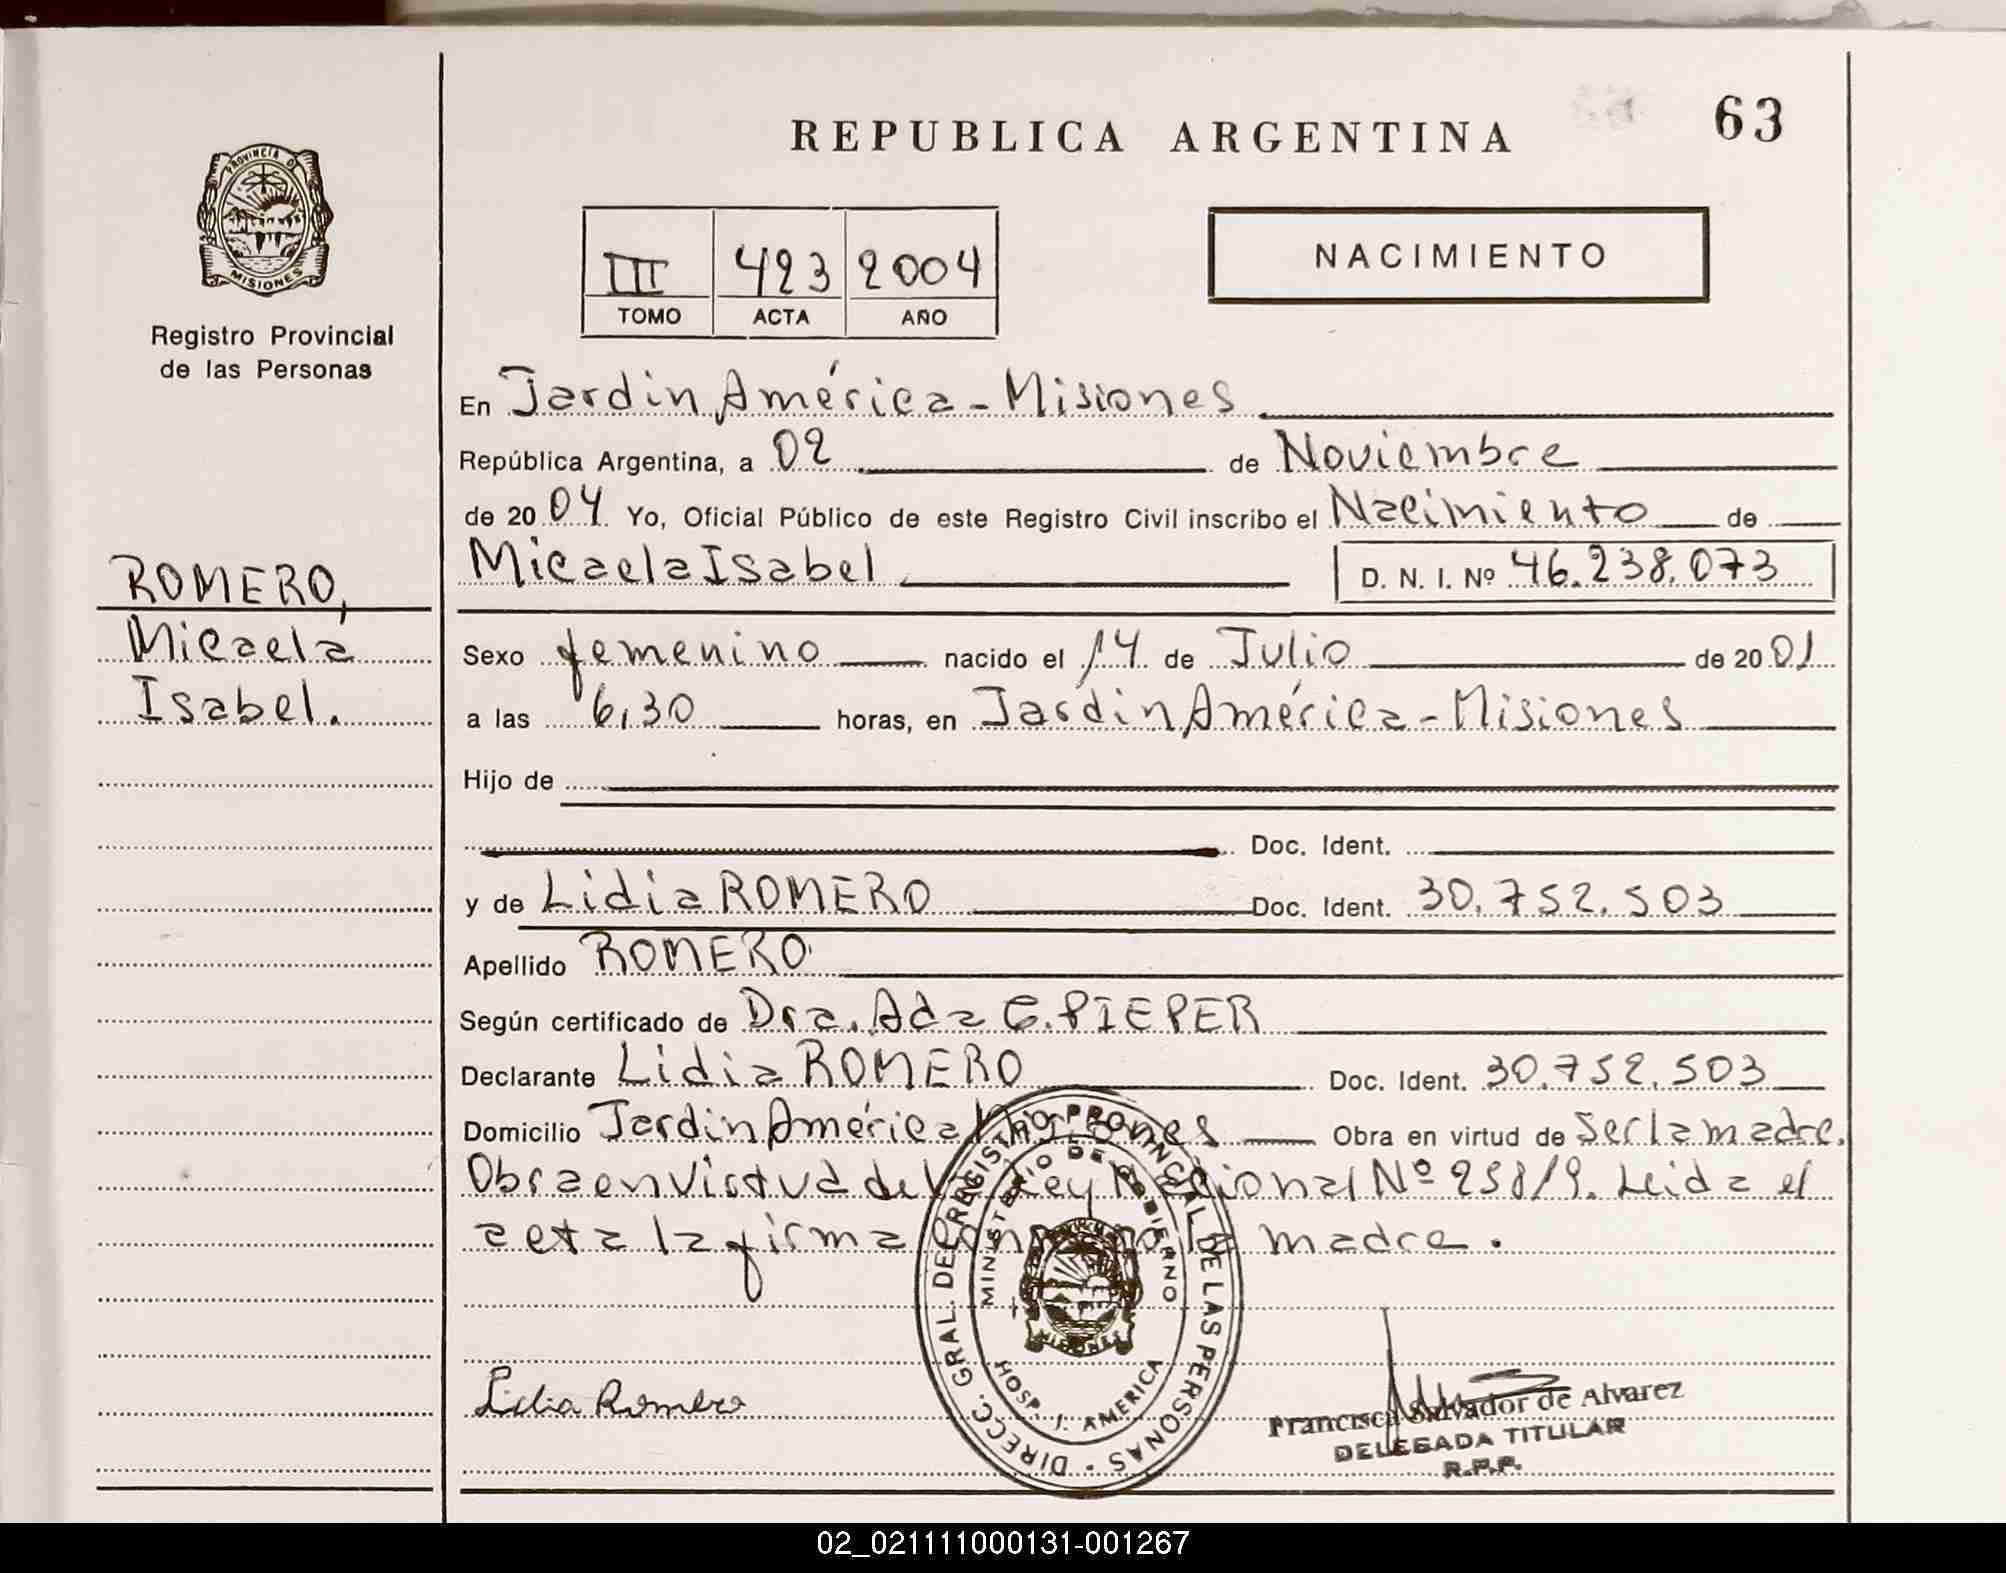 REPUBLICA ARGENTINA
63
PROVINCIA D
MISIONES
Registro Provincial
de las Personas
III 423 2004
TOMO ACTA AÑO
NACIMIENTO
En Jardin América - Misiones
República Argentina, a 02 de Noviembre
de 2004 Yo, Oficial Público de este Registro Civil inscribo el Nacimiento de
Micaela Isabel D. N. I. Nº 46.238.073
ROMERO,
Micaela
Isabel.
Sexo femenino nacido el 14 de Julio de 2001
a las 6,30 horas, en Jardin América - Misiones
Hijo de
Doc. Ident.
y de Lidia ROMERO Doc. Ident. 30.752.503
Apellido ROMERO
Según certificado de Dra. Ada G. PIEPER
Declarante Lidia ROMERO Doc. Ident. 30.752.503
Domicilio Jardin América Misiones Obra en virtud de Ser la madre.
Obra en virtud de Ley Nacional Nº 258/9. Leida el
acta la firma la madre.
DIRECC. GRAL. DEL REGISTRO PROVINCIAL DE LAS PERSONAS
MINISTERIO DE GOBIERNO
MISIONES
HOSP. J. AMERICA
Lidia Romero
Francisca Salvador de Alvarez
DELEGADA TITULAR
R.P.P.
02_021111000131-001267